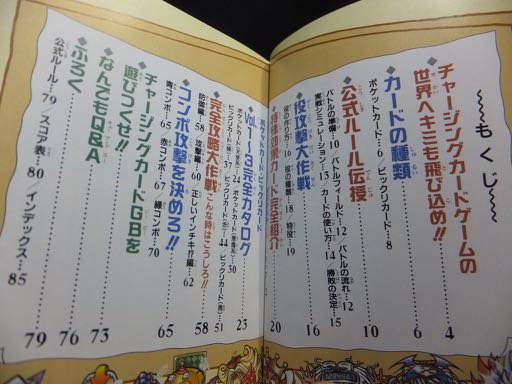 ～～もくじ～～
チャージングカードゲームの
世界へキミも飛び込め!!
4
カードの種類
6
ポケットカード…6／ビックリカード…8
公式ルール伝授
10
バトルの準備…10／バトルフィールド…12／バトルの流れ…12
実戦シミュレーション…13／カードの使い方…14／勝敗の決定…15
役攻撃大作戦
16
役の作り方…16／役の種類…18／特役…19
特殊効果カード完全紹介
20
ポケットカード ビックリカード
Vol. 3 完全カタログ
23
完全攻略大作戦 こんな時はこうしろ!!
58
防御編…58／攻撃編…60／正しいインチキ!?編…62
コンボ攻撃を決めろ!!
65
青コンボ…65／赤コンボ…67／緑コンボ…70
チャージングカードGBを
遊びつくせ!!
73
なんでもQ&A
76
ふろく
79
公式ルール…79／スコア表…80／インデックス…85